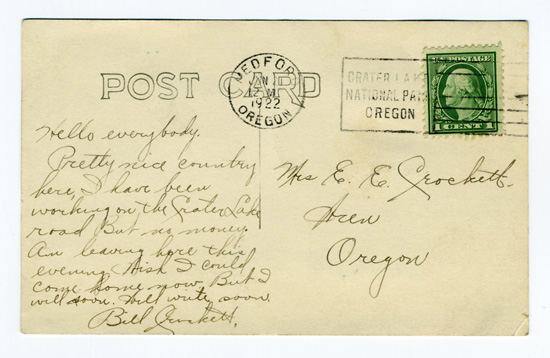 POST CARD
MEDFORD
JAN
12 M
1922
OREGON
CRATER LAKE
NATIONAL PARK
OREGON
U.S. POSTAGE
1 CENT 1
Hello everybody.
Pretty nice country
here, I have been
working on the Crater Lake
road But no money.
Am leaving here this
evening. Wish I could
come home now But I
will soon. Will write soon
Bill Crockett.
Mrs E. E. Crockett.
Oregon